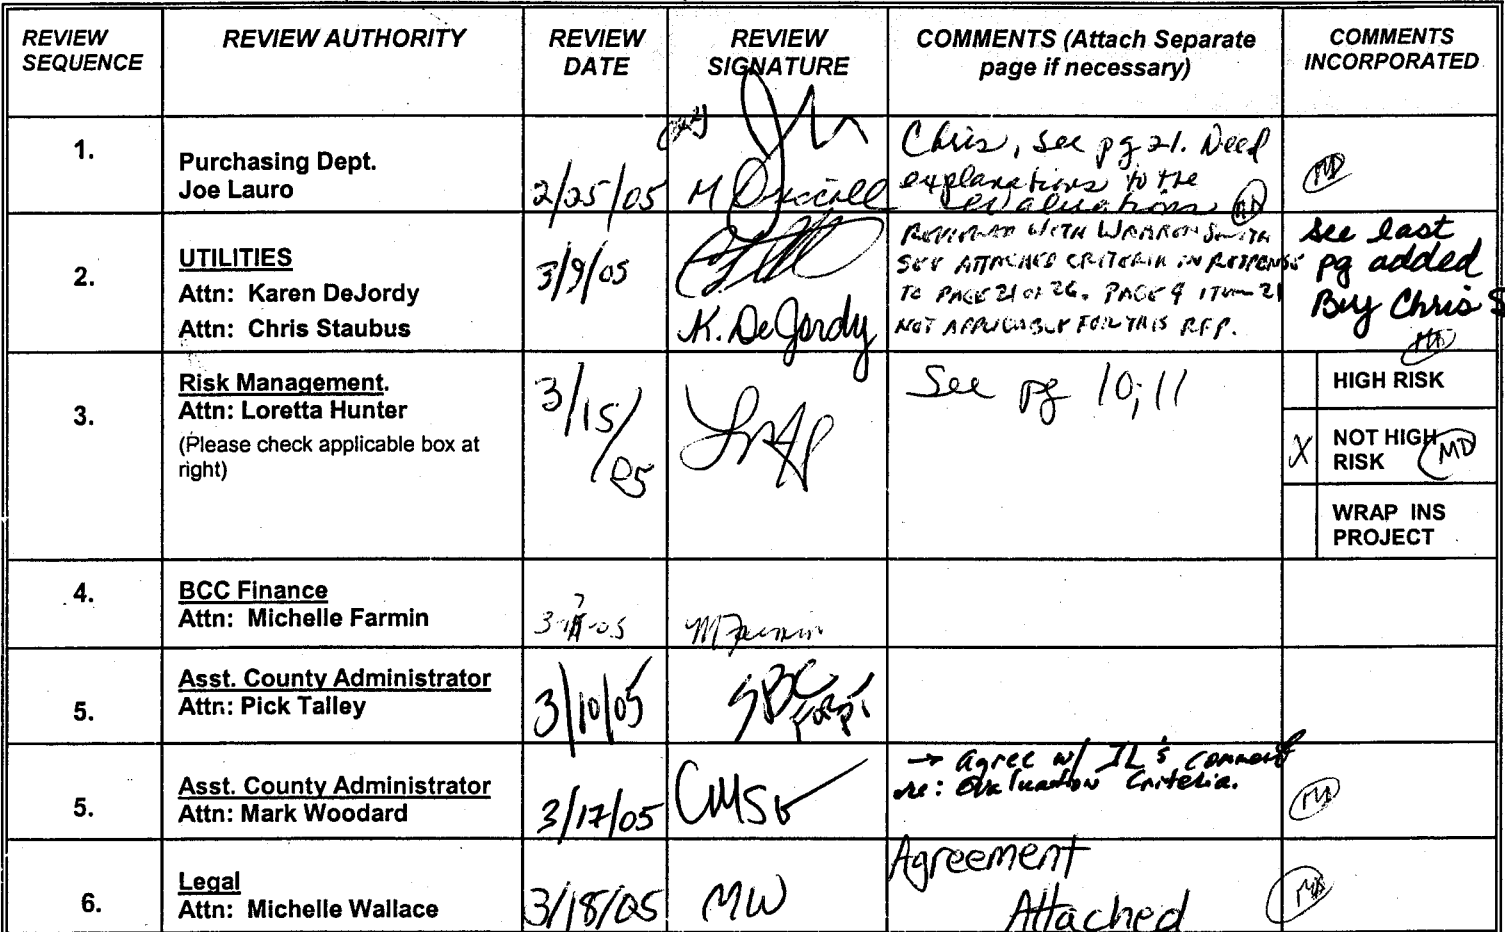 REVIEW SEQUENCE
REVIEW AUTHORITY
REVIEW DATE
REVIEW SIGNATURE
COMMENTS (Attach Separate page if necessary)
COMMENTS INCORPORATED
1.
Purchasing Dept.
Joe Lauro
2/25/05
M Driscoll
Chris, see pg 21. Need
explanations to the
evaluations
MD
2.
UTILITIES
Attn: Karen DeJordy
Attn: Chris Staubus
3/9/05
K. DeJordy
REVIEWED WITH WARREN SMITH
SEE ATTACHED CRITERIA IN RESPONSE
TO PAGE 21 OF 26. PAGE 9 ITEM 21
NOT APPLICABLE FOR THIS RFP.
See last
pg added
By Chris S
MD
3.
Risk Management.
Attn: Loretta Hunter
(Please check applicable box at
right)
3/15/05
See pg 10, 11
HIGH RISK
X
NOT HIGH
RISK
MD
WRAP INS
PROJECT
4.
BCC Finance
Attn: Michelle Farmin
MFarmin
5.
Asst. County Administrator
Attn: Pick Talley
3/10/05
SBC
for PT
5.
Asst. County Administrator
Attn: Mark Woodard
3/17/05
→ agree w/ JL's comment
re: Evaluation Criteria.
MD
6.
Legal
Attn: Michelle Wallace
3/18/05
MW
Agreement
Attached
MD